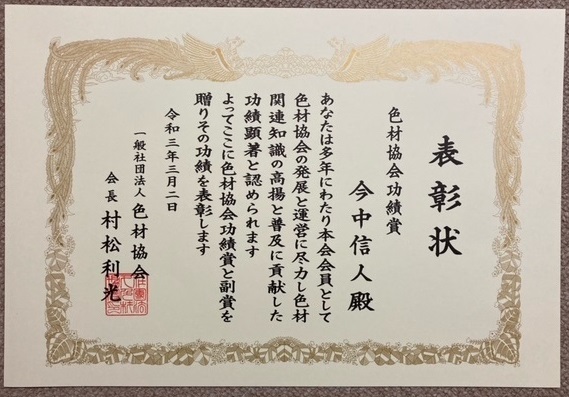 表彰状
色材協会功績賞
今中信人殿
あなたは多年にわたり本会会員として
色材協会の発展と運営に尽力し色材
関連知識の高揚と普及に貢献した
功績顕著と認められます
よってここに色材協会功績賞と副賞を
贈りその功績を表彰します
令和三年三月二日
一般社団法人 色材協会
会長 村松利光